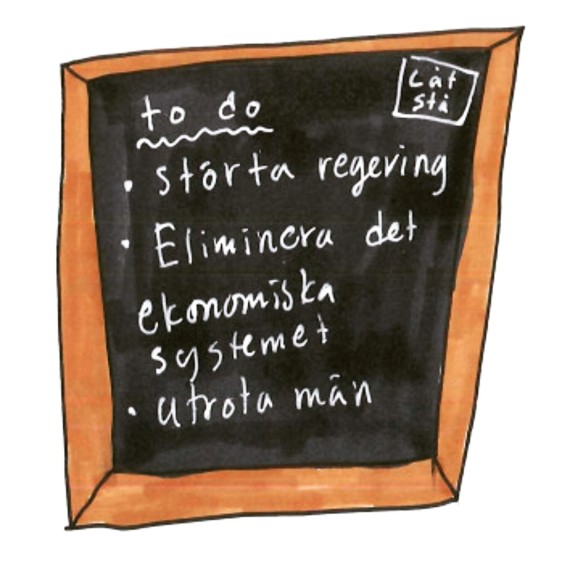 Låt
stå
to do
• störta regering
• Eliminera det
ekonomiska
systemet
• utrota män